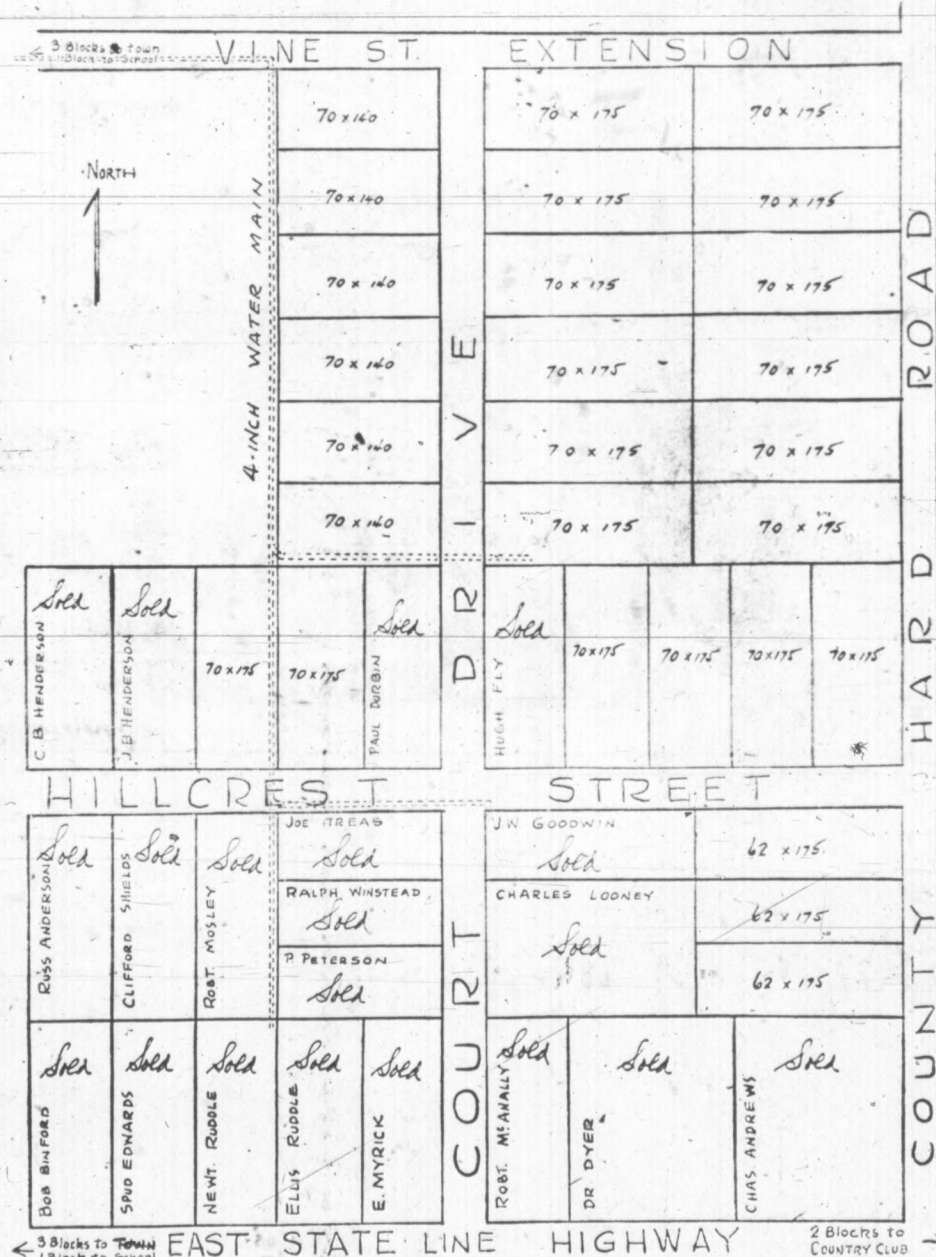 ← 3 Blocks to town
1 Block to School
VINE ST. EXTENSION
NORTH
4-INCH WATER MAIN
70 x 140
70 x 175
70 x 175
70 x 140
70 x 175
70 x 175
70 x 140
70 x 175
70 x 175
70 x 140
70 x 175
70 x 175
70 x 140
70 x 175
70 x 175
70 x 140
70 x 175
70 x 175
COURT DRIVE
COUNTY HARD ROAD
Sold
C. B. HENDERSON
Sold
J.B. HENDERSON
70 x 175
70 x 175
Sold
PAUL DURBIN
Sold
HUGH FLY
70 x 175
70 x 175
70 x 175
70 x 175
HILLCREST STREET
Sold
ROSS ANDERSON
Sold
CLIFFORD SHIELDS
Sold
ROBT. MOSLEY
JOE TREAS
Sold
RALPH WINSTEAD
Sold
P. PETERSON
Sold
J.W. GOODWIN
Sold
CHARLES LOONEY
Sold
62 x 175
62 x 175
62 x 175
Sold
BOB BINFORD
Sold
SPUD EDWARDS
Sold
NEWT. RUDDLE
Sold
ELLIS RUDDLE
Sold
E. MYRICK
Sold
ROBT. McANALLY
Sold
DR. DYER
Sold
CHAS. ANDREWS
← 3 Blocks to TOWN
1 Block to School
EAST STATE LINE HIGHWAY
2 Blocks to
COUNTRY CLUB